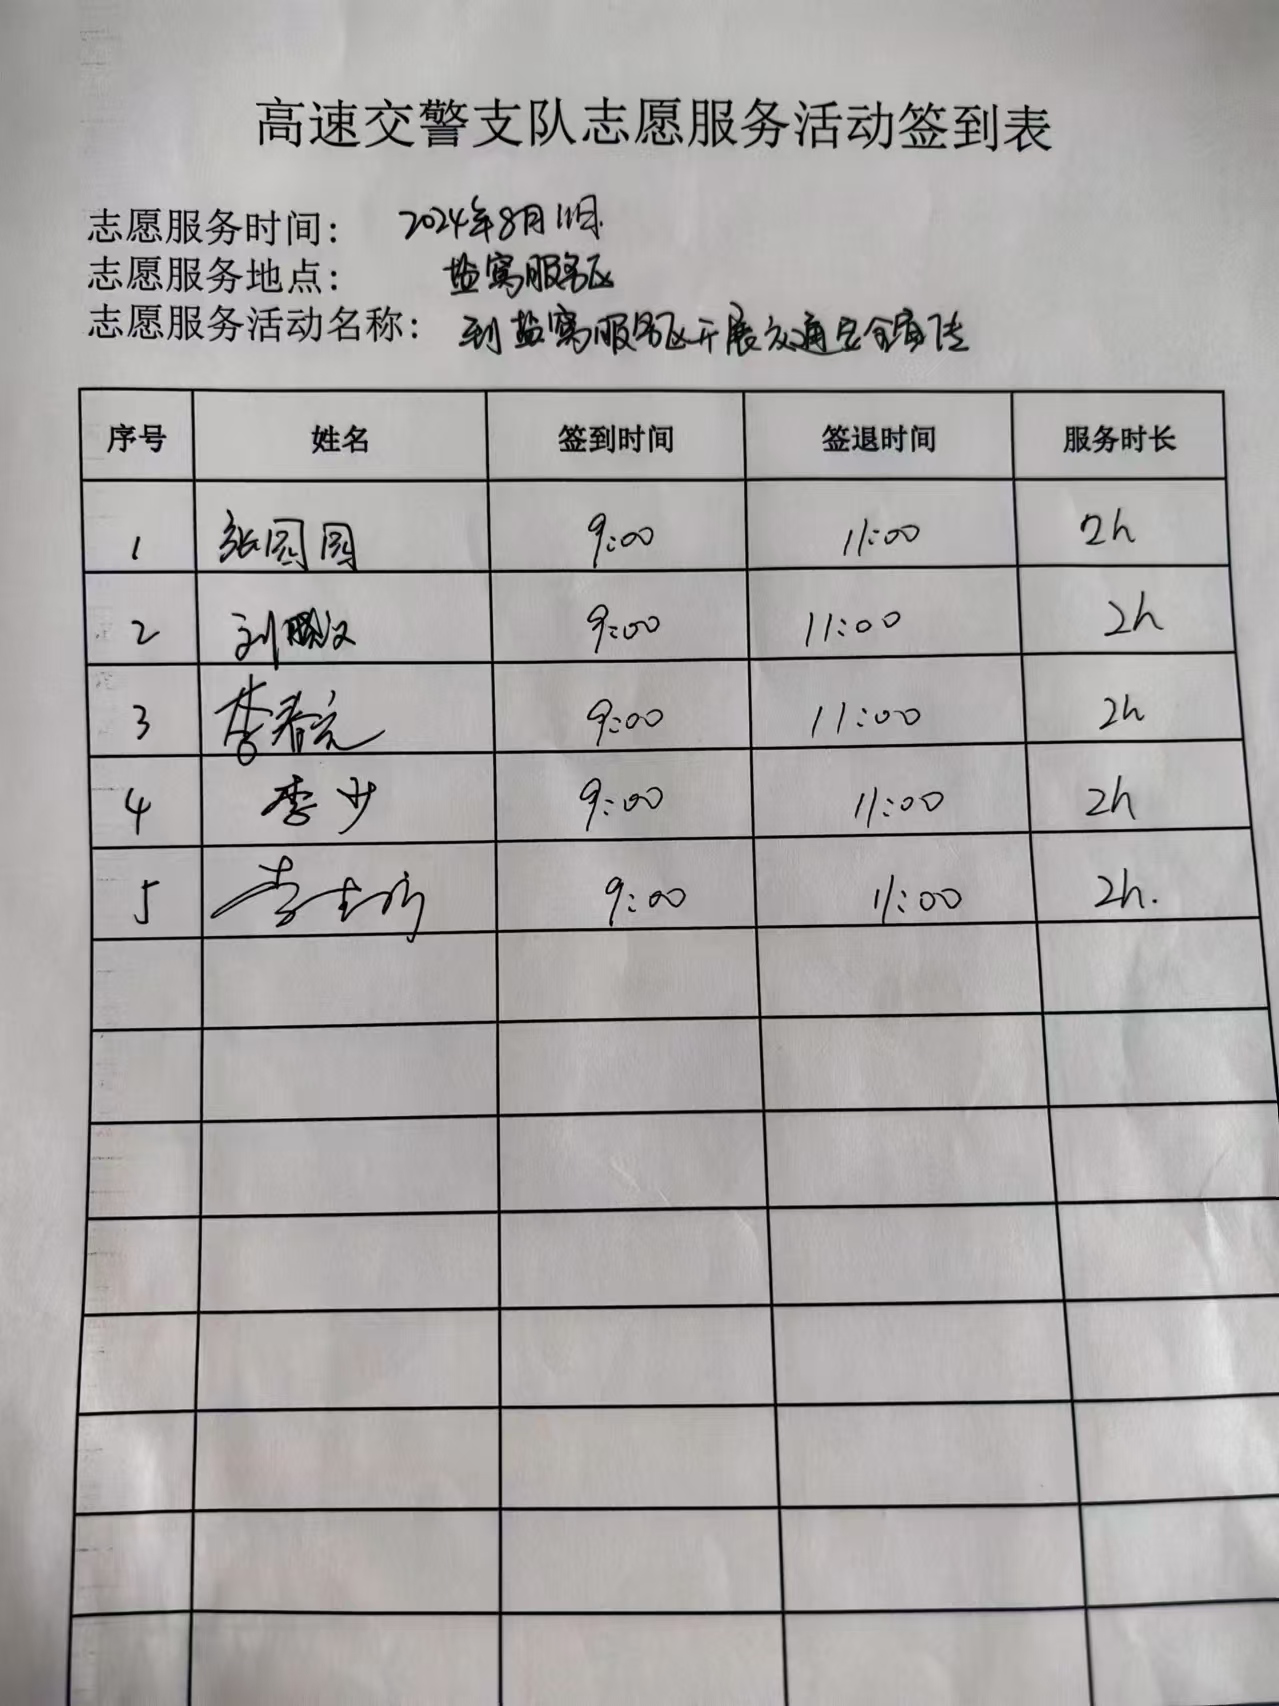 高速交警支队志愿服务活动签到表
志愿服务时间： 2024年8月11日
志愿服务地点： 盐窝服务区
志愿服务活动名称： 到盐窝服务区开展交通安全宣传
序号 姓名 签到时间 签退时间 服务时长
1 张园园 9:00 11:00 2h
2 刘 9:00 11:00 2h
3 李春亮 9:00 11:00 2h
4 李少 9:00 11:00 2h
5 李 9:00 11:00 2h.